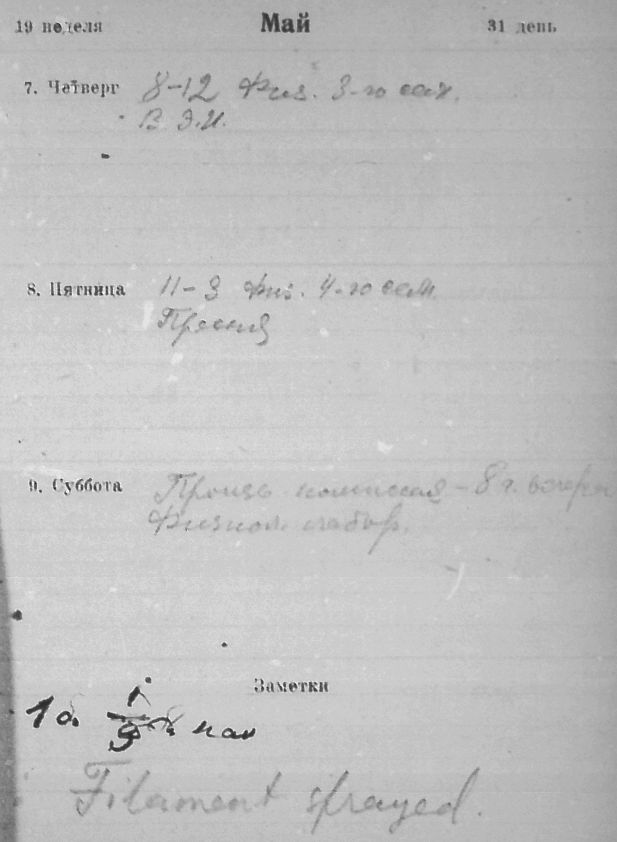 19 неделя Май 31 день
7. Четверг 8-12 Физ. 3-го сем.
В Э.И.
8. Пятница 11-3 Физ. 4-го сем.
Пресня
9. Суббота комиссия - 8 ч. вечера
Физиол. лабор.
Заметки
Filament sprayed.